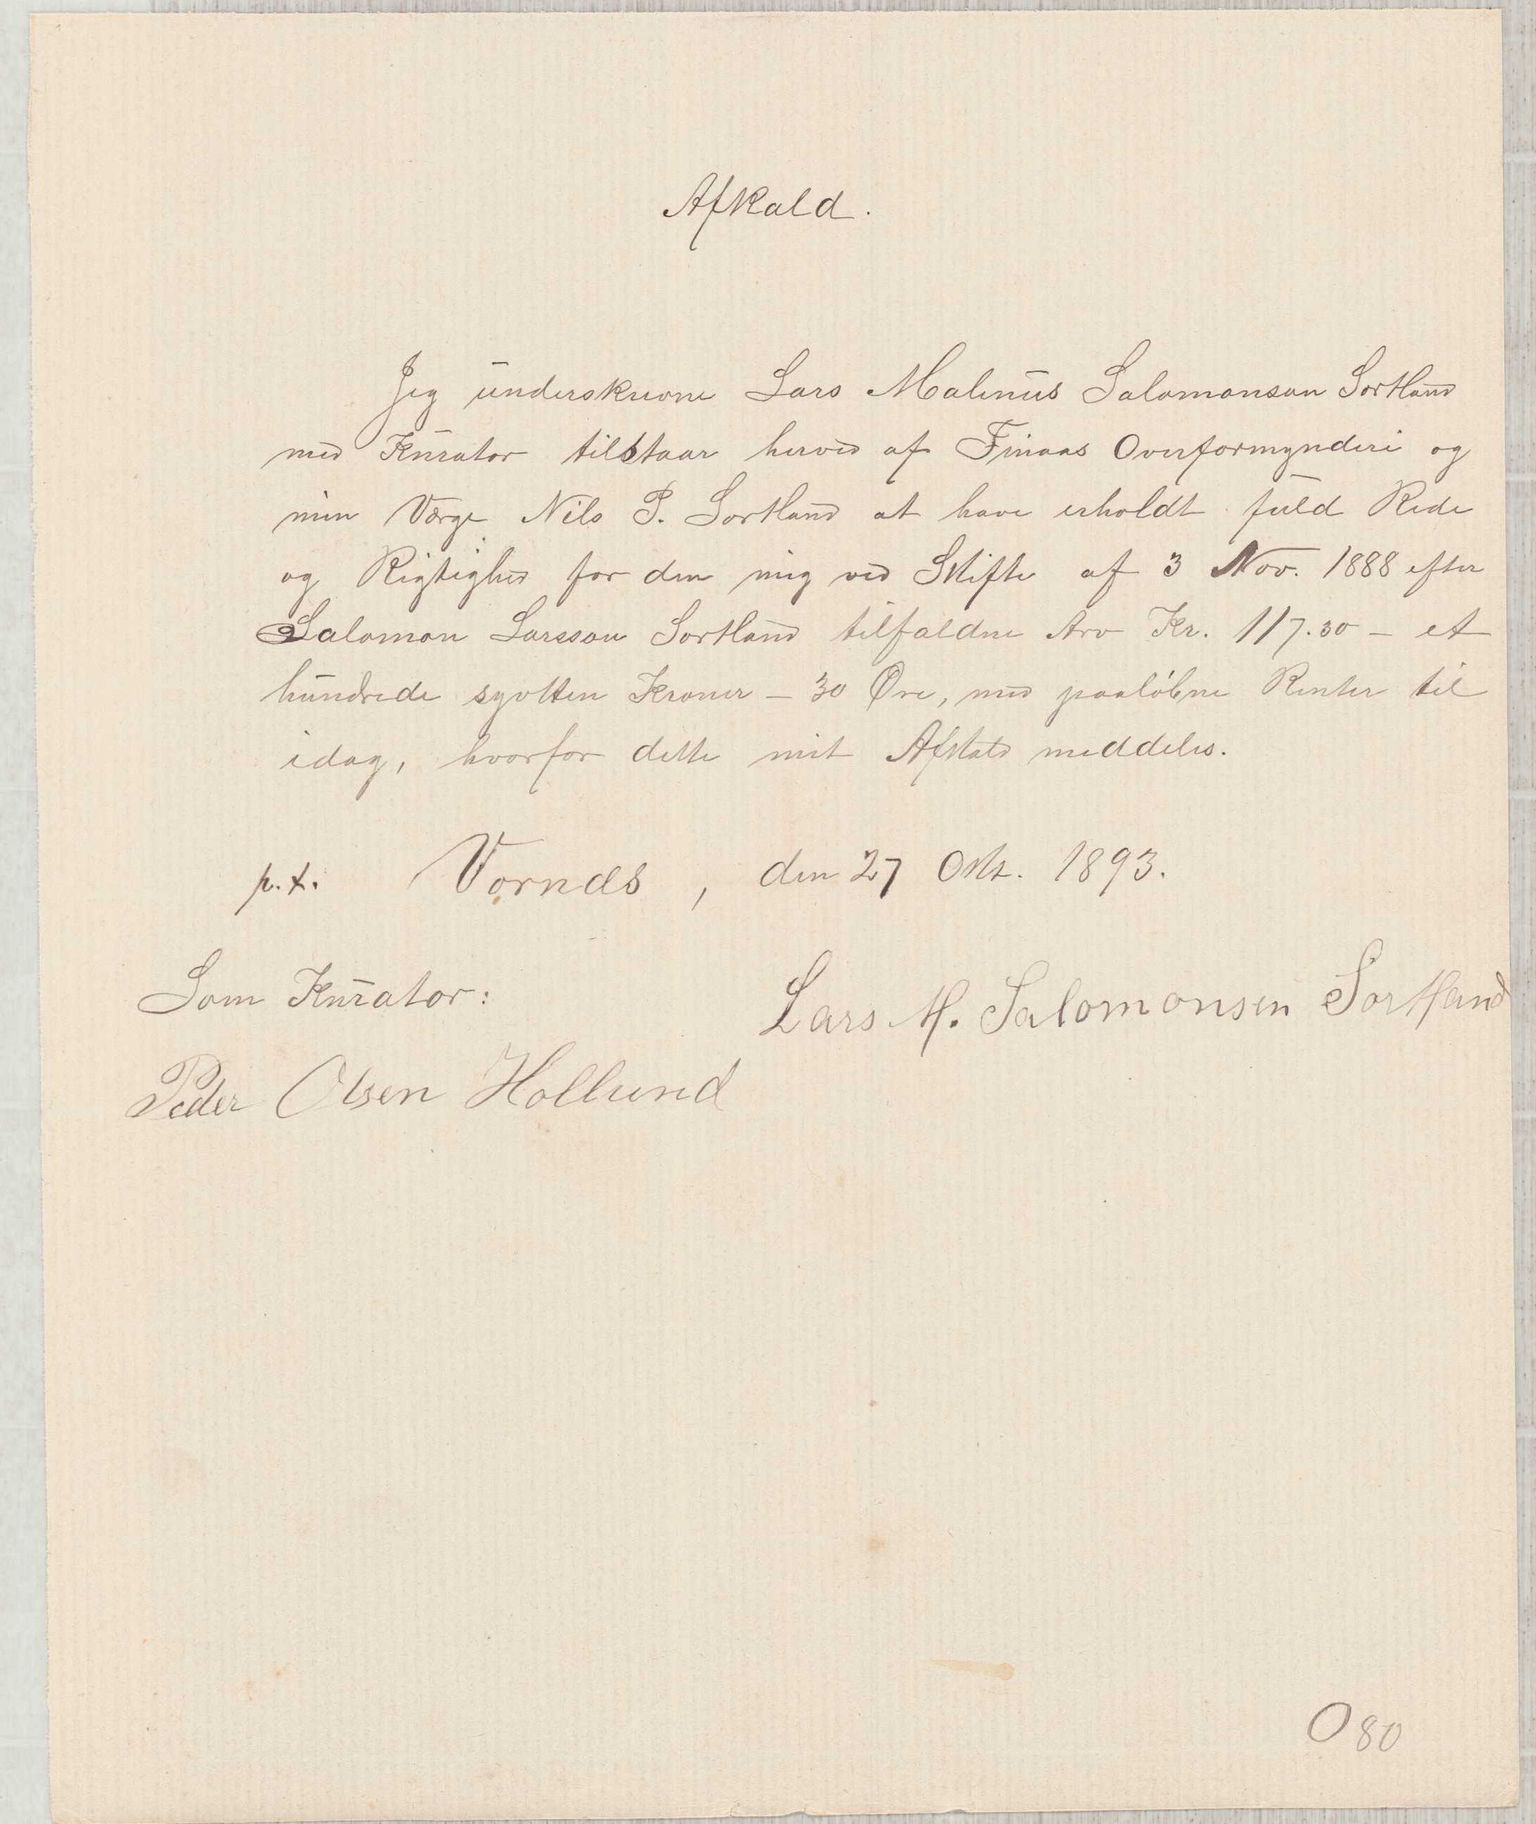 Afkald.
Jeg underskrevne Lars Malinus Salomonsen Sortland
med Kurator tilstaar herved af Finaas Overformynderi og
min Værge Nils P. Sortland at have erholdt fuld Rede
og Rigtighed for den mig ved Skifte af 3 Nov. 1888 efter
Salamon Larsson Sortland tilfaldne Arv Kr. 117.30 – et
hundrede sytten Kroner – 30 Øre, med paaløbne Renter til
idag, hvorfor dette mit Afkald meddeles.
p.t. Vornæs, den 27 Okt. 1893.
Som Kurator:
Lars M. Salomonsen Sortland
Peder Olsen Hollund
O80